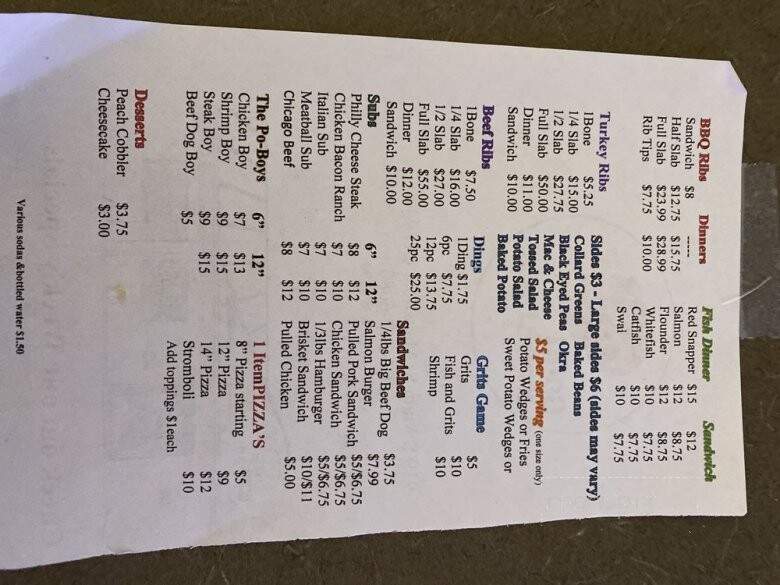 BBQ Ribs Dinners
Sandwich $8 -----
Half Slab $12.75 $15.75
Full Slab $23.99 $28.99
Rib Tips $7.75 $10.00
Fish Dinner Sandwich
Red Snapper $15 $12
Salmon $12 $8.75
Flounder $12 $8.75
Whitefish $10 $7.75
Catfish $10 $7.75
Swai $10 $7.75
Turkey Ribs
1Bone $5.25
1/4 Slab $15.00
1/2 Slab $27.75
Full Slab $50.00
Dinner $11.00
Sandwich $10.00
Sides $3 - Large sides $6 (sides may vary)
Collard Greens Baked Beans
Black Eyed Peas Okra
Mac & Cheese
Tossed Salad
Potato Salad
Baked Potato
$5 per serving (one size only)
Potato Wedges or Fries
Sweet Potato Wedges or
Beef Ribs
1Bone $7.50
1/4 Slab $16.00
1/2 Slab $27.00
Full Slab $55.00
Dinner $12.00
Sandwich $10.00
Dings
1Ding $1.75
6pc $7.75
12pc $13.75
25pc $25.00
Grits Game
Grits $5
Fish and Grits $10
Shrimp $10
Subs 6" 12"
Philly Cheese Steak $8 $12
Chicken Bacon Ranch $7 $10
Italian Sub $7 $10
Meatball Sub $7 $10
Chicago Beef $8 $12
Sandwiches
1/4lbs Big Beef Dog $3.75
Salmon Burger $7.99
Pulled Pork Sandwich $5/$6.75
Chicken Sandwich $5/$6.75
1/3lbs Hamburger $5/$6.75
Brisket Sandwich $10/$11
Pulled Chicken $5.00
The Po-Boys 6" 12"
Chicken Boy $7 $13
Shrimp Boy $9 $15
Steak Boy $9 $15
Beef Dog Boy $5
1 ItemPIZZA'S
8" Pizza starting $5
12" Pizza $9
14" Pizza $12
Stromboli $10
Add toppings $1each
Desserts
Peach Cobbler $3.75
Cheesecake $3.00
Various sodas & bottled water $1.50